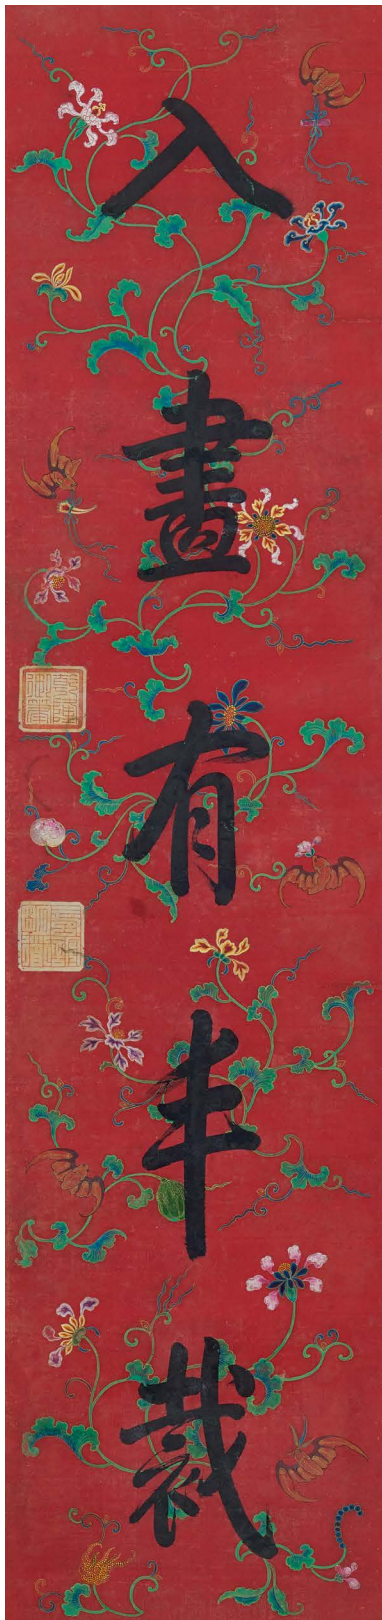 入畫有丰裁